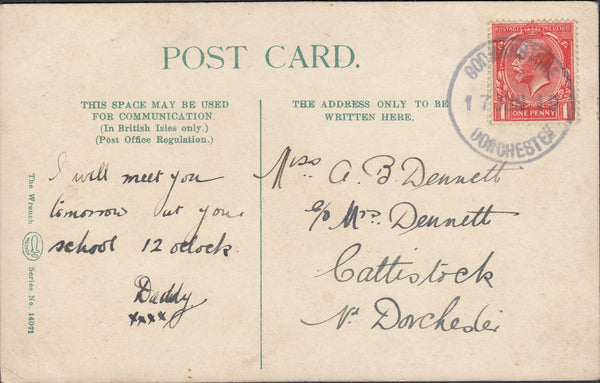 POST CARD.
THIS SPACE MAY BE USED
FOR COMMUNICATION
(In British Isles only.)
(Post Office Regulation.)
THE ADDRESS ONLY TO BE
WRITTEN HERE.
POSTAGE REVENUE
ONE PENNY
DORCHESTER
I will meet you
tomorrow at your
school 12 oclock
Daddy
xxxx
Miss A. B Dennett
c/o Mrs. Dennett
Cattistock
Nr Dorchester
The Wrench
Series No. 14071